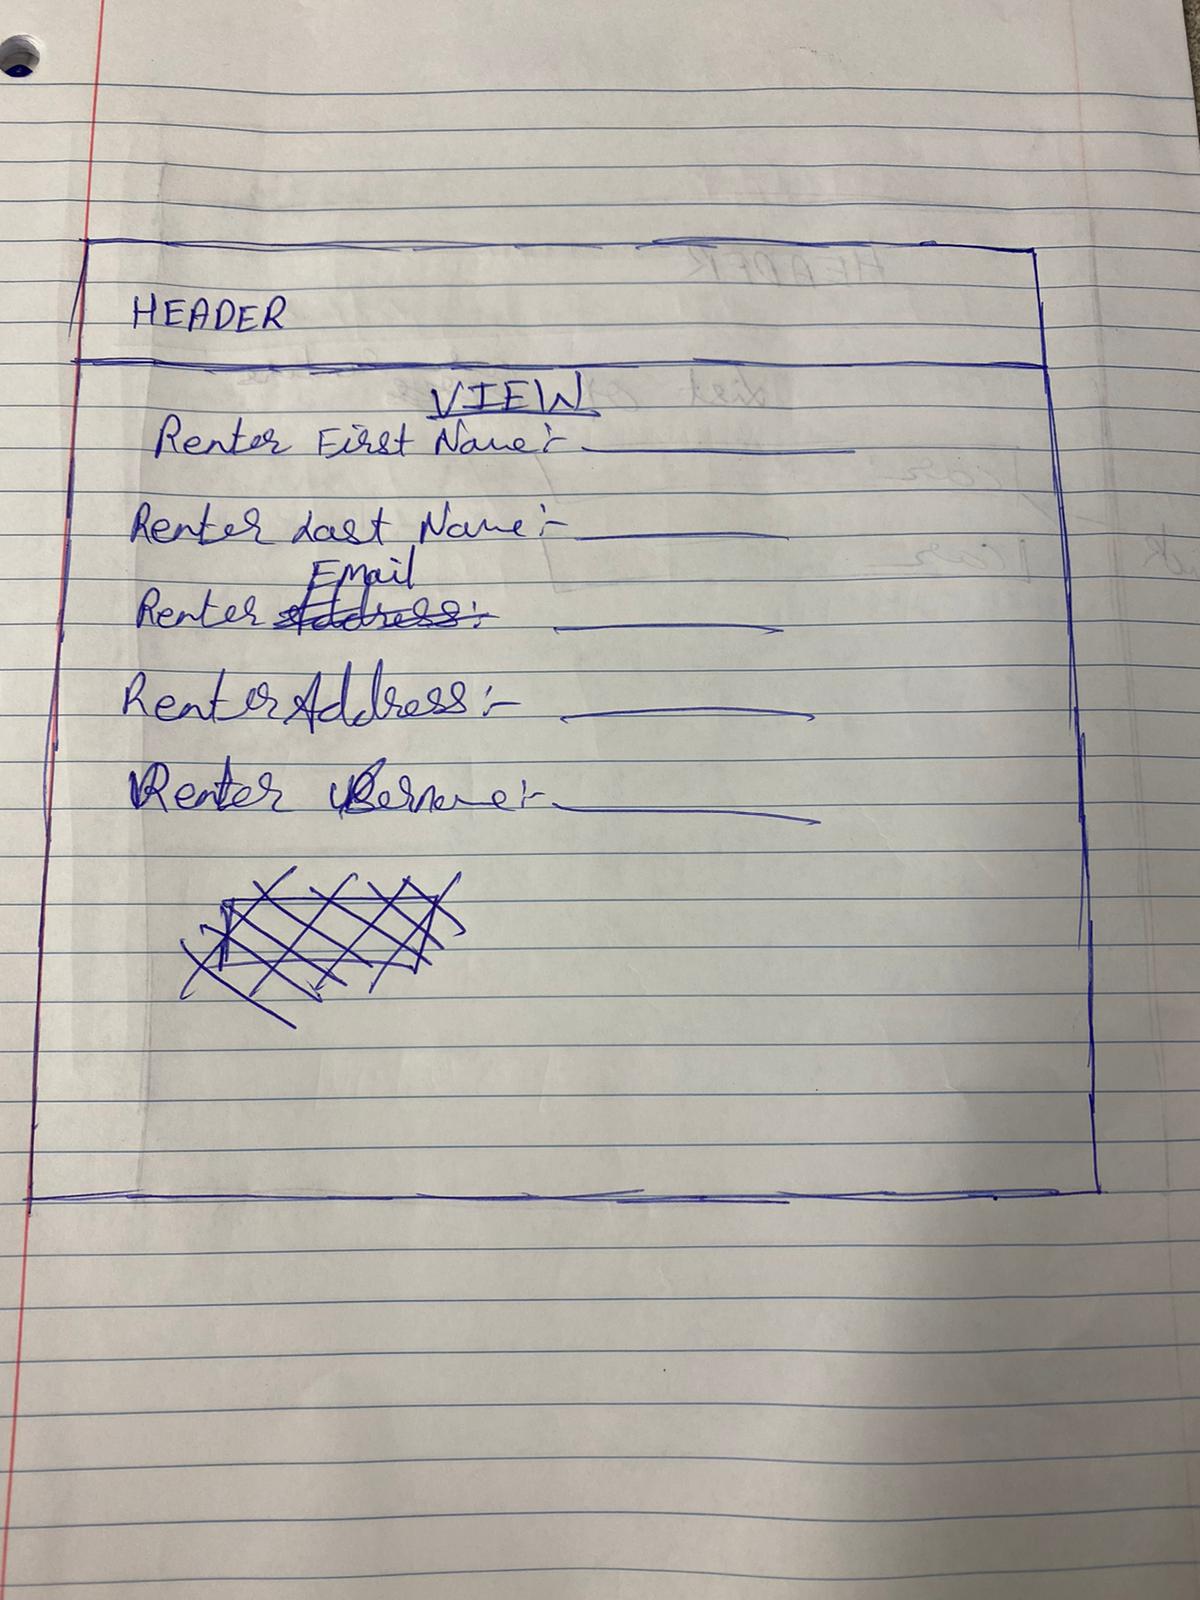 HEADER
VIEW
Renter First Name:-
Renter Last Name:-
Email
Renter Address:-
Renter Address:-
Renter Username:-